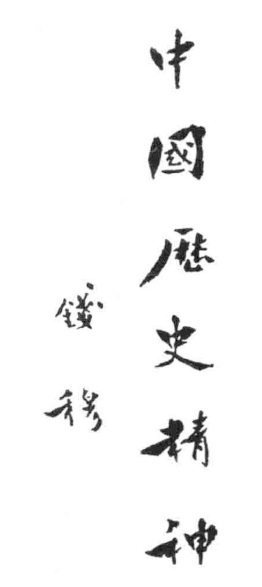 中國歷史精神
錢穆